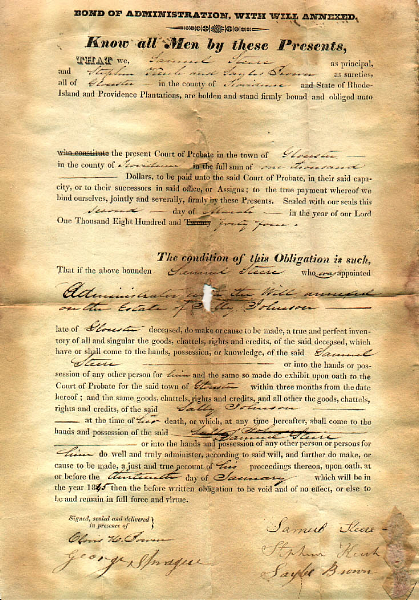 BOND OF ADMINISTRATION, WITH WILL ANNEXED.
Know all Men by these Presents,
THAT we, Samuel Steere as principal,
and Stephen and Sayles Brown as sureties,
all of Gloucester in the county of Providence and State of Rhode-
Island and Providence Plantations, are holden and stand firmly bound and obliged unto
who constitute the present Court of Probate in the town of Gloucester
in the county of Providence in the full sum of one thousand
Dollars, to be paid unto the said Court of Probate, in their said capa-
city, or to their successors in said office, or Assigns; to the true payment whereof we
bind ourselves, jointly and severally, firmly by these Presents. Sealed with our seals this
Second day of March in the year of our Lord
One Thousand Eight Hundred and Twenty forty four.
The condition of this Obligation is such,
That if the above bounden Samuel Steere who was appointed
Administrator with the Will annexed
on the Estate of Sally Johnson
late of Gloucester deceased, do make or cause to be made, a true and perfect inven-
tory of all and singular the goods, chattels, rights and credits, of the said deceased, which
have or shall come to the hands, possession, or knowledge, of the said Samuel
Steere or into the hands or pos-
session of any other person for him and the same so made do exhibit upon oath to the
Court of Probate for the said town of Gloucester within three months from the date
hereof; and the same goods, chattels, rights and credits, and all other the goods, chattels,
rights and credits, of the said Sally Johnson
at the time of her death, or which, at any time hereafter, shall come to the
hands and possession of the said Samuel Steere
or into the hands and possession of any other person or persons for
him do well and truly administer, according to said will, and further do make, or
cause to be made, a just and true account of his proceedings thereon, upon oath, at
or before the day of January which will be in
the year 1845 then the before written obligation to be void and of no effect, or else to
be and remain in full force and virtue.
Signed, sealed and delivered
in presence of
Samuel Steere
Stephen
George Sprague
Sayles Brown